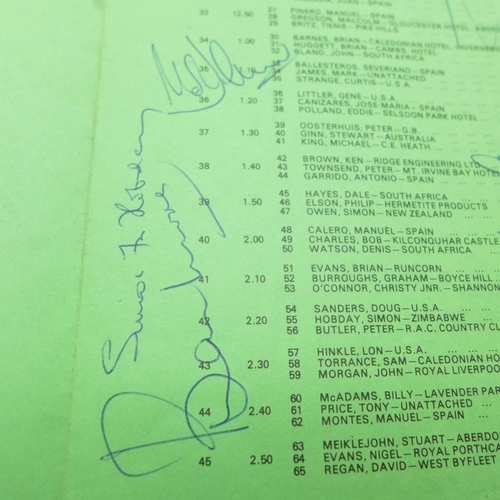 33 12.50 27 PINERO, MANUEL—SPAIN
28 GREGSON, MALCOLM—GLOUCESTER HOTEL,
29 BRITZ, TIENIE—PIKE HILLS
34 1.00 30 BARNES, BRIAN—CALEDONIAN HOTEL,
31 HUGGETT, BRIAN—CAMBS. HOTEL
32 BLAND, JOHN—SOUTH AFRICA
33 BALLESTEROS, SEVERIANO—SPAIN
34 JAMES, MARK—UNATTACHED
35 STRANGE, CURTIS—U.S.A.
36 1.20 36 LITTLER, GENE—U.S.A.
37 CANIZARES, JOSE-MARIA—SPAIN
38 POLLAND, EDDIE—SELSDON PARK HOTEL
37 1.30 39 OOSTERHUIS, PETER—G.B.
40 GINN, STEWART—AUSTRALIA
41 KING, MICHAEL—C.E. HEATH
38 1.40 42 BROWN, KEN—RIDGE ENGINEERING LTD.
43 TOWNSEND, PETER—MT. IRVINE BAY HOTEL
44 GARRIDO, ANTONIO—SPAIN
39 1.50 45 HAYES, DALE—SOUTH AFRICA
46 ELSON, PHILIP—HERMETITE PRODUCTS
47 OWEN, SIMON—NEW ZEALAND
40 2.00 48 CALERO, MANUEL—SPAIN
49 CHARLES, BOB—KILCONQUHAR CASTLE
50 WATSON, DENIS—SOUTH AFRICA
41 2.10 51 EVANS, BRIAN—RUNCORN
52 BURROUGHS, GRAHAM—BOYCE HILL
53 O'CONNOR, CHRISTY JNR.—SHANNON
42 2.20 54 SANDERS, DOUG—U.S.A.
55 HOBDAY, SIMON—ZIMBABWE
56 BUTLER, PETER—R.A.C. COUNTRY
43 2.30 57 HINKLE, LON—U.S.A.
58 TORRANCE, SAM—CALEDONIAN
59 MORGAN, JOHN—ROYAL LIVERPOOL
44 2.40 60 McADAMS, BILLY—LAVENDER PARK
61 PRICE, TONY—UNATTACHED
62 MONTES, MANUEL—SPAIN
45 2.50 63 MEIKLEJOHN, STUART—ABERDO
64 EVANS, NIGEL—ROYAL PORTHCA
65 REGAN, DAVID—WEST BYFLEET